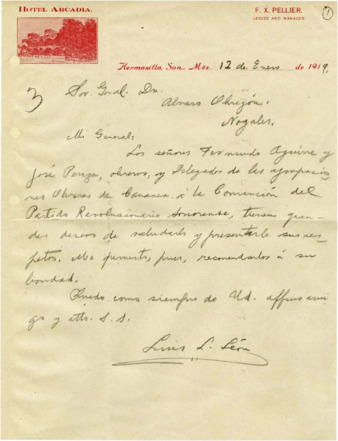 HOTEL ARCADIA.
F. X. PELLIER.
LESSEE AND MANAGER.
1
Hermosillo, Son. Méx. 12 de Enero de 1919,
3
Sor. Gral. Dn.
Alvaro Obregón.
Nogales.
Mi General:
Los señores Fernando Aguirre y
José Perez, obreros, y Delegados de las agrupacio-
nes Obreras de Cananea, á la Convención del
Partido Revolucionario Sonorense, tienen gran-
des deseos de saludarlo y presentarle sus res-
petos. Me permito, pues, recomendarlos á su
bondad.
Quedo como siempre de Ud. affmo ami-
go y atto. S. S.
Luis L. León